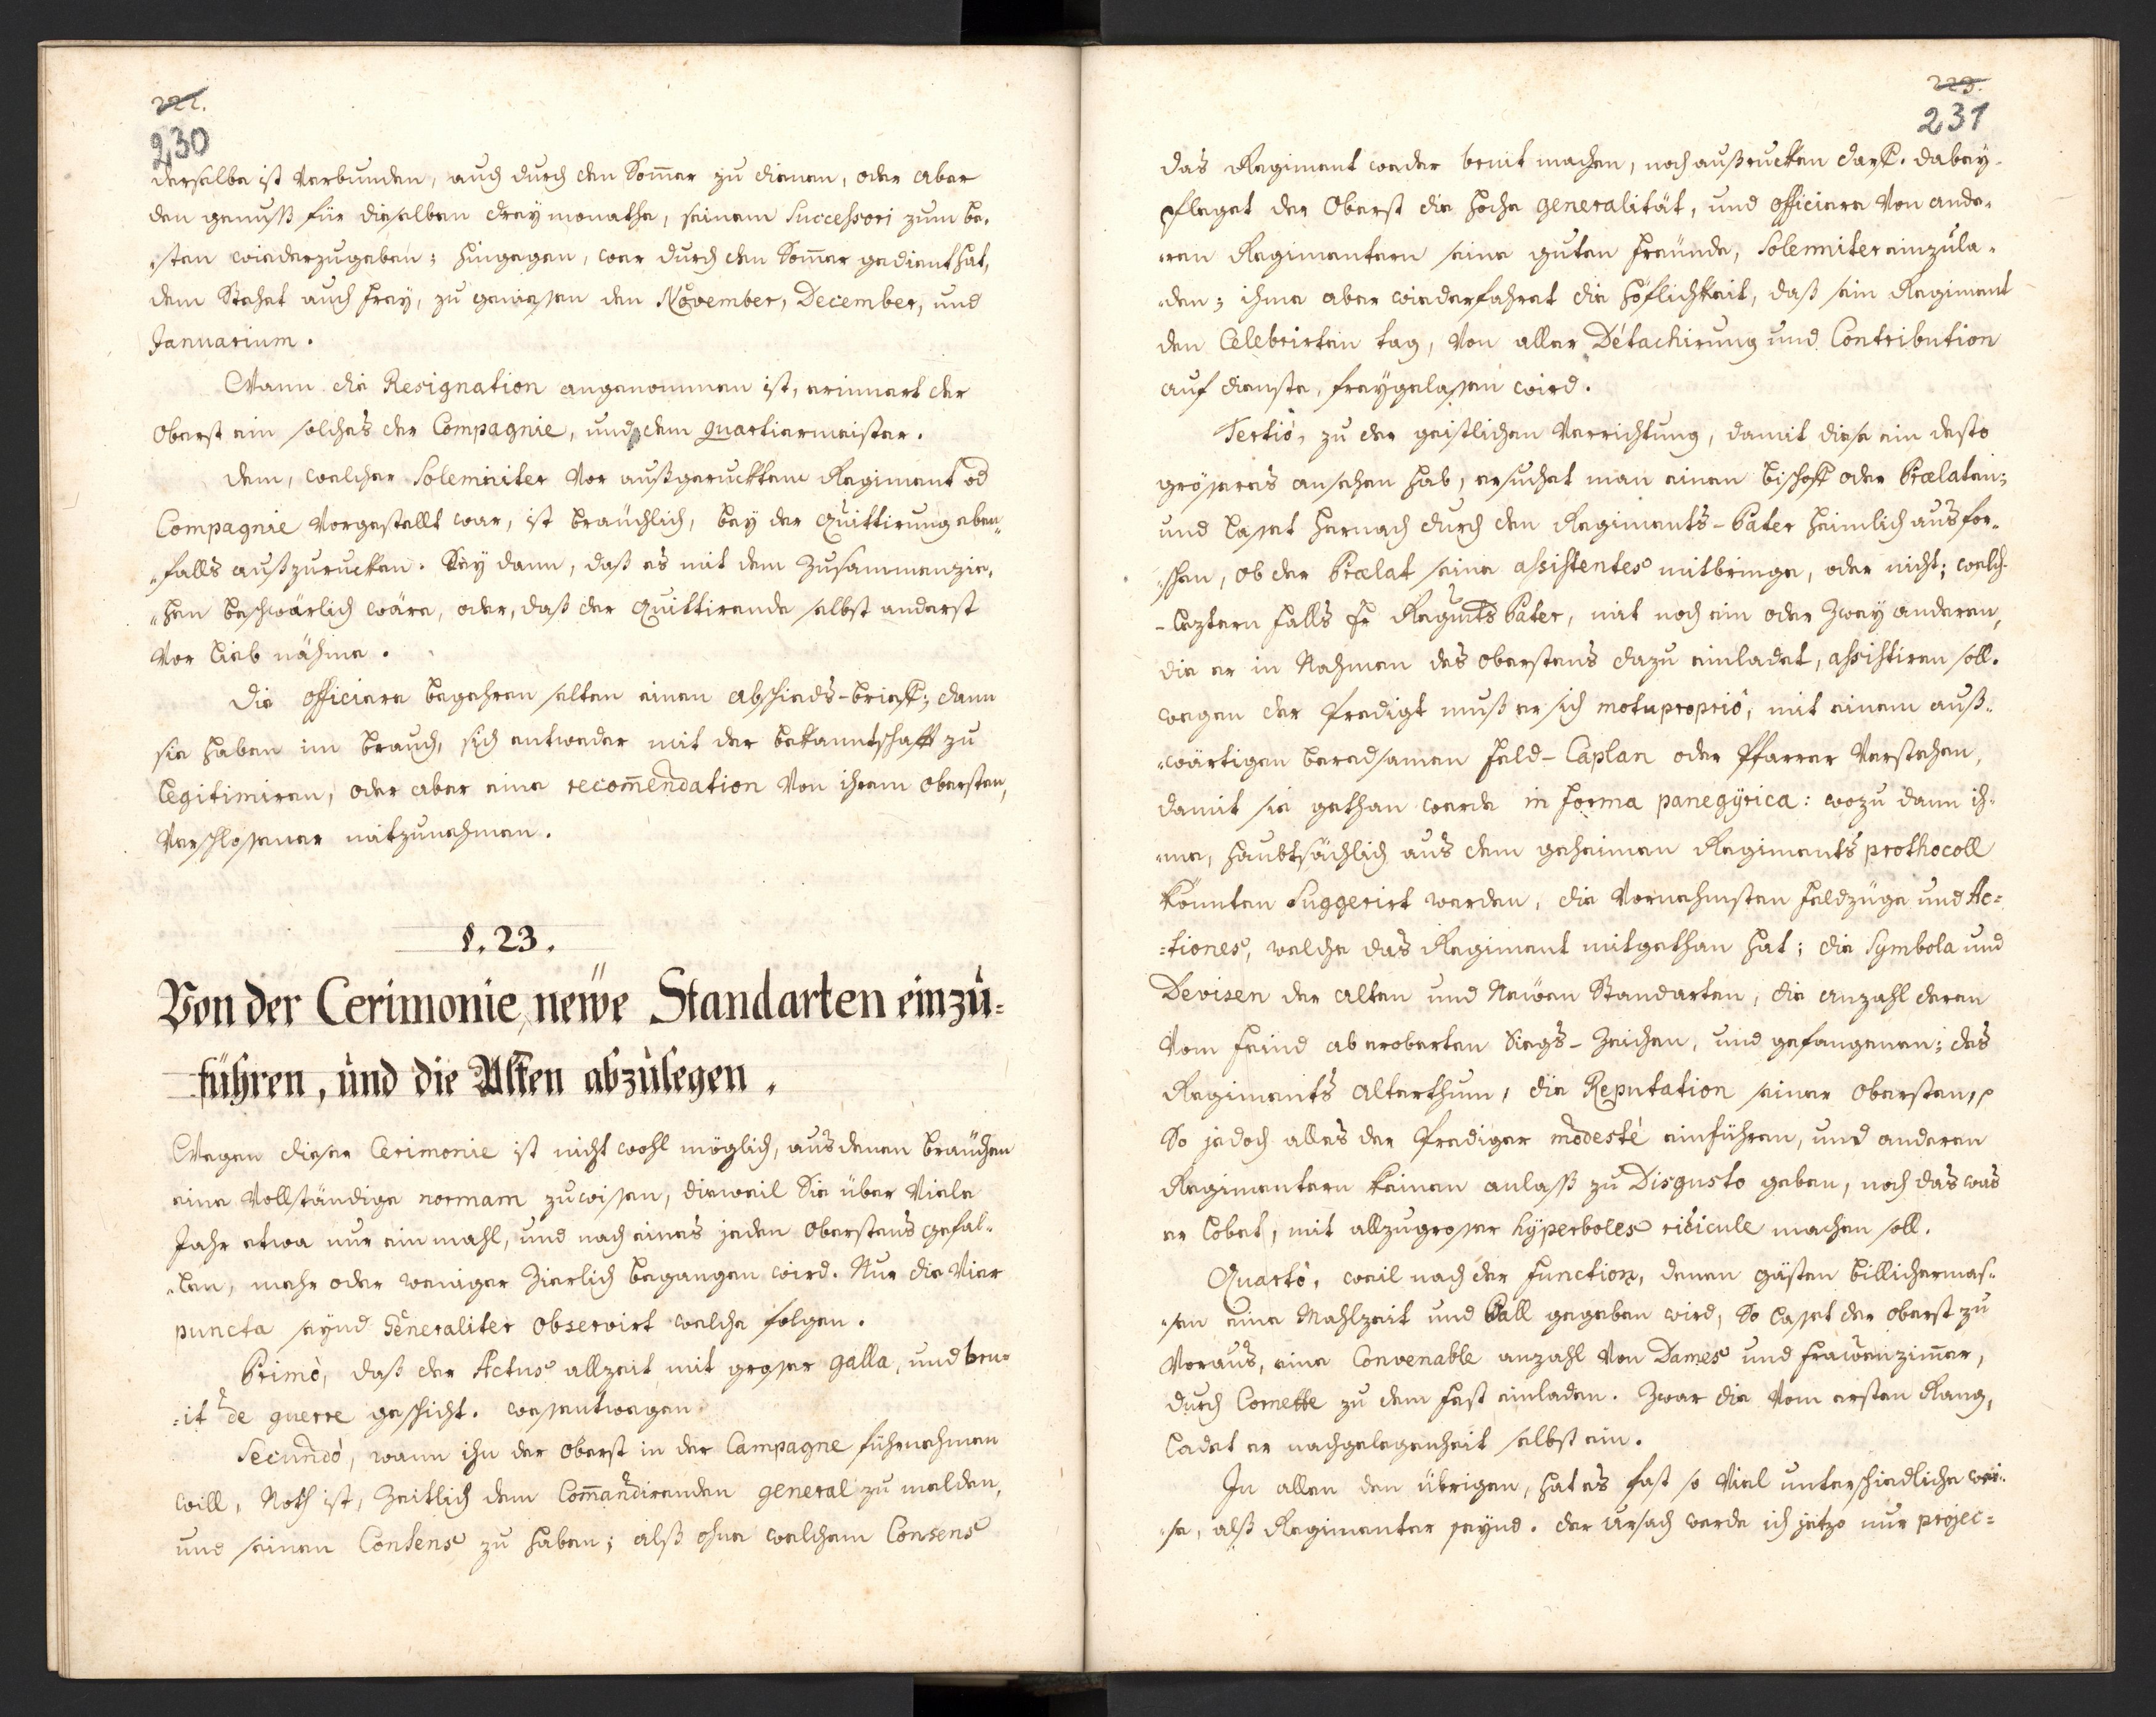 222.
230
derselbe ist verbunden, auch durch den Som̅er zu dienen, oder aber
den genuß für dieselben drey monathe, seinem Successori zum be„
„sten wiederzugeben; hingegen, wer durch den Som̅er gedient hat,
dem stehet auch frey, zu geniessen den November, December, und
Januarium.
Wann die Resignation angenommen ist, erinnert der
Oberst ein solches der Compagnie, und dem quartiermeister.
Dem, welcher Solemniter vor außgeruckktem Regiment od
Compagnie vorgestellt war, ist bräuchlich, bey der quittirung eben„
„falls außzurucken. Sey dann, daß es mit dem Zusammenzie„
„hen beschwärlich wäre, oder, daß der quittirende selbst anderst
vor lieb nähme.
Die officiere begehren selten einen abschieds-brieff; dann
sie haben im brauch, sich entweder mit der bekanntschafft zu
legitimiren, oder aber eine recom̅endation von ihrem obersten,
verschlossener mitzunehmen.
§. 23.
Von der Cerimonie, newe Standarten einzu=
führen, und die Alten abzulegen.
Wegen dieser Cerimonie ist nicht wohl möglich, aus denen bräuchen
eine vollständige normam zu wissen, dieweil sie über viele
Jahr etwa nur ein mahl, und nach eines jeden oberstens gefal„
„len, mehr oder weniger zierlich begangen wird. Nur die vier
puncta seynd Generaliter observirt welche folgen.
Primò, daß der Actus allzeit mit grosser galla, und bru=
=it de guerre geschicht. wessentwegen
Secundò, wann ihn der oberst in der Campagne führnehmen
will, Noth ist, zeitlich dem Com̅andirenden general zu melden,
und seinen Consens zu haben; alß ohne welchem Consens
223.
231
das Regiment weder bruit machen, noch außrucken darff. dabey
pfleget der Oberst die hoche generalität, und officiere von ande„
„ren Regimentern seine guten freünde, Solenniter einzula„
„den; ihme aber wiederfahret die höflichkeit, daß sein Regiment
den Celebrirten tag, von aller Détachirung und Contribution
auf dienste, freygelassen wird.
Tertiò, zu der geistlichen verrichtung, damit diese ein desto
grösseres ansehen hab, ersuchet man einen bischoff oder Prælaten;
und lasset hernach durch den Regiments-Pater heimlich ausfor„
„schen, ob der Prælat seine assistentes mitbringe, oder nicht; welch
-leztern falls Hr Regmts Pater, mit noch ein oder zwey anderen,
die er in Nahmen des oberstens dazu einladet, assistiren soll.
wegen der Predigt muß er sich motu proprio, mit einem auß„
„wärtigen beredsamen Feld-Caplan oder Pfarrer verstehen,
damit sie gethan werde in forma panegÿrica: wozu dann ih„
„me, haubtsächlich aus dem geheimen Regiments prothocoll
könnten Suggerirt werden, die vornehmsten feldzüge und Ac=
=tiones, welche das Regiment mitgethan hat; die Symbola und
Devisen der alten und Neüen Standarten, die anzahl deren
vom feind ab eroberten Siegs-Zeichen, und gefangenen; des
Regiments alterthum, die Reputation seiner Obersten,
So jedoch alles der Prediger modestè einführen, und anderen
Regimentern keinen anlaß zu Disgusto geben, noch das was
er lobet, mit allzugrosser hÿperboles ridicule machen soll.
Quartò, weil nach der function, denen gästen billichermas„
„sen eine Mahlzeit und Ball gegeben wird, So lasset der oberst zu
voraus, eine Convenable anzahl von Dames und frawenzim̅er,
durch Cornette zu dem fest einladen. Zwar die vom ersten Rang,
ladet er nachgelegenheit selbst ein.
In allen den übrigen, hat es fast so viel unterschiedliche wei„
„se, alß Regimenter seynd. der ursach werde ich jetzo nur projec=